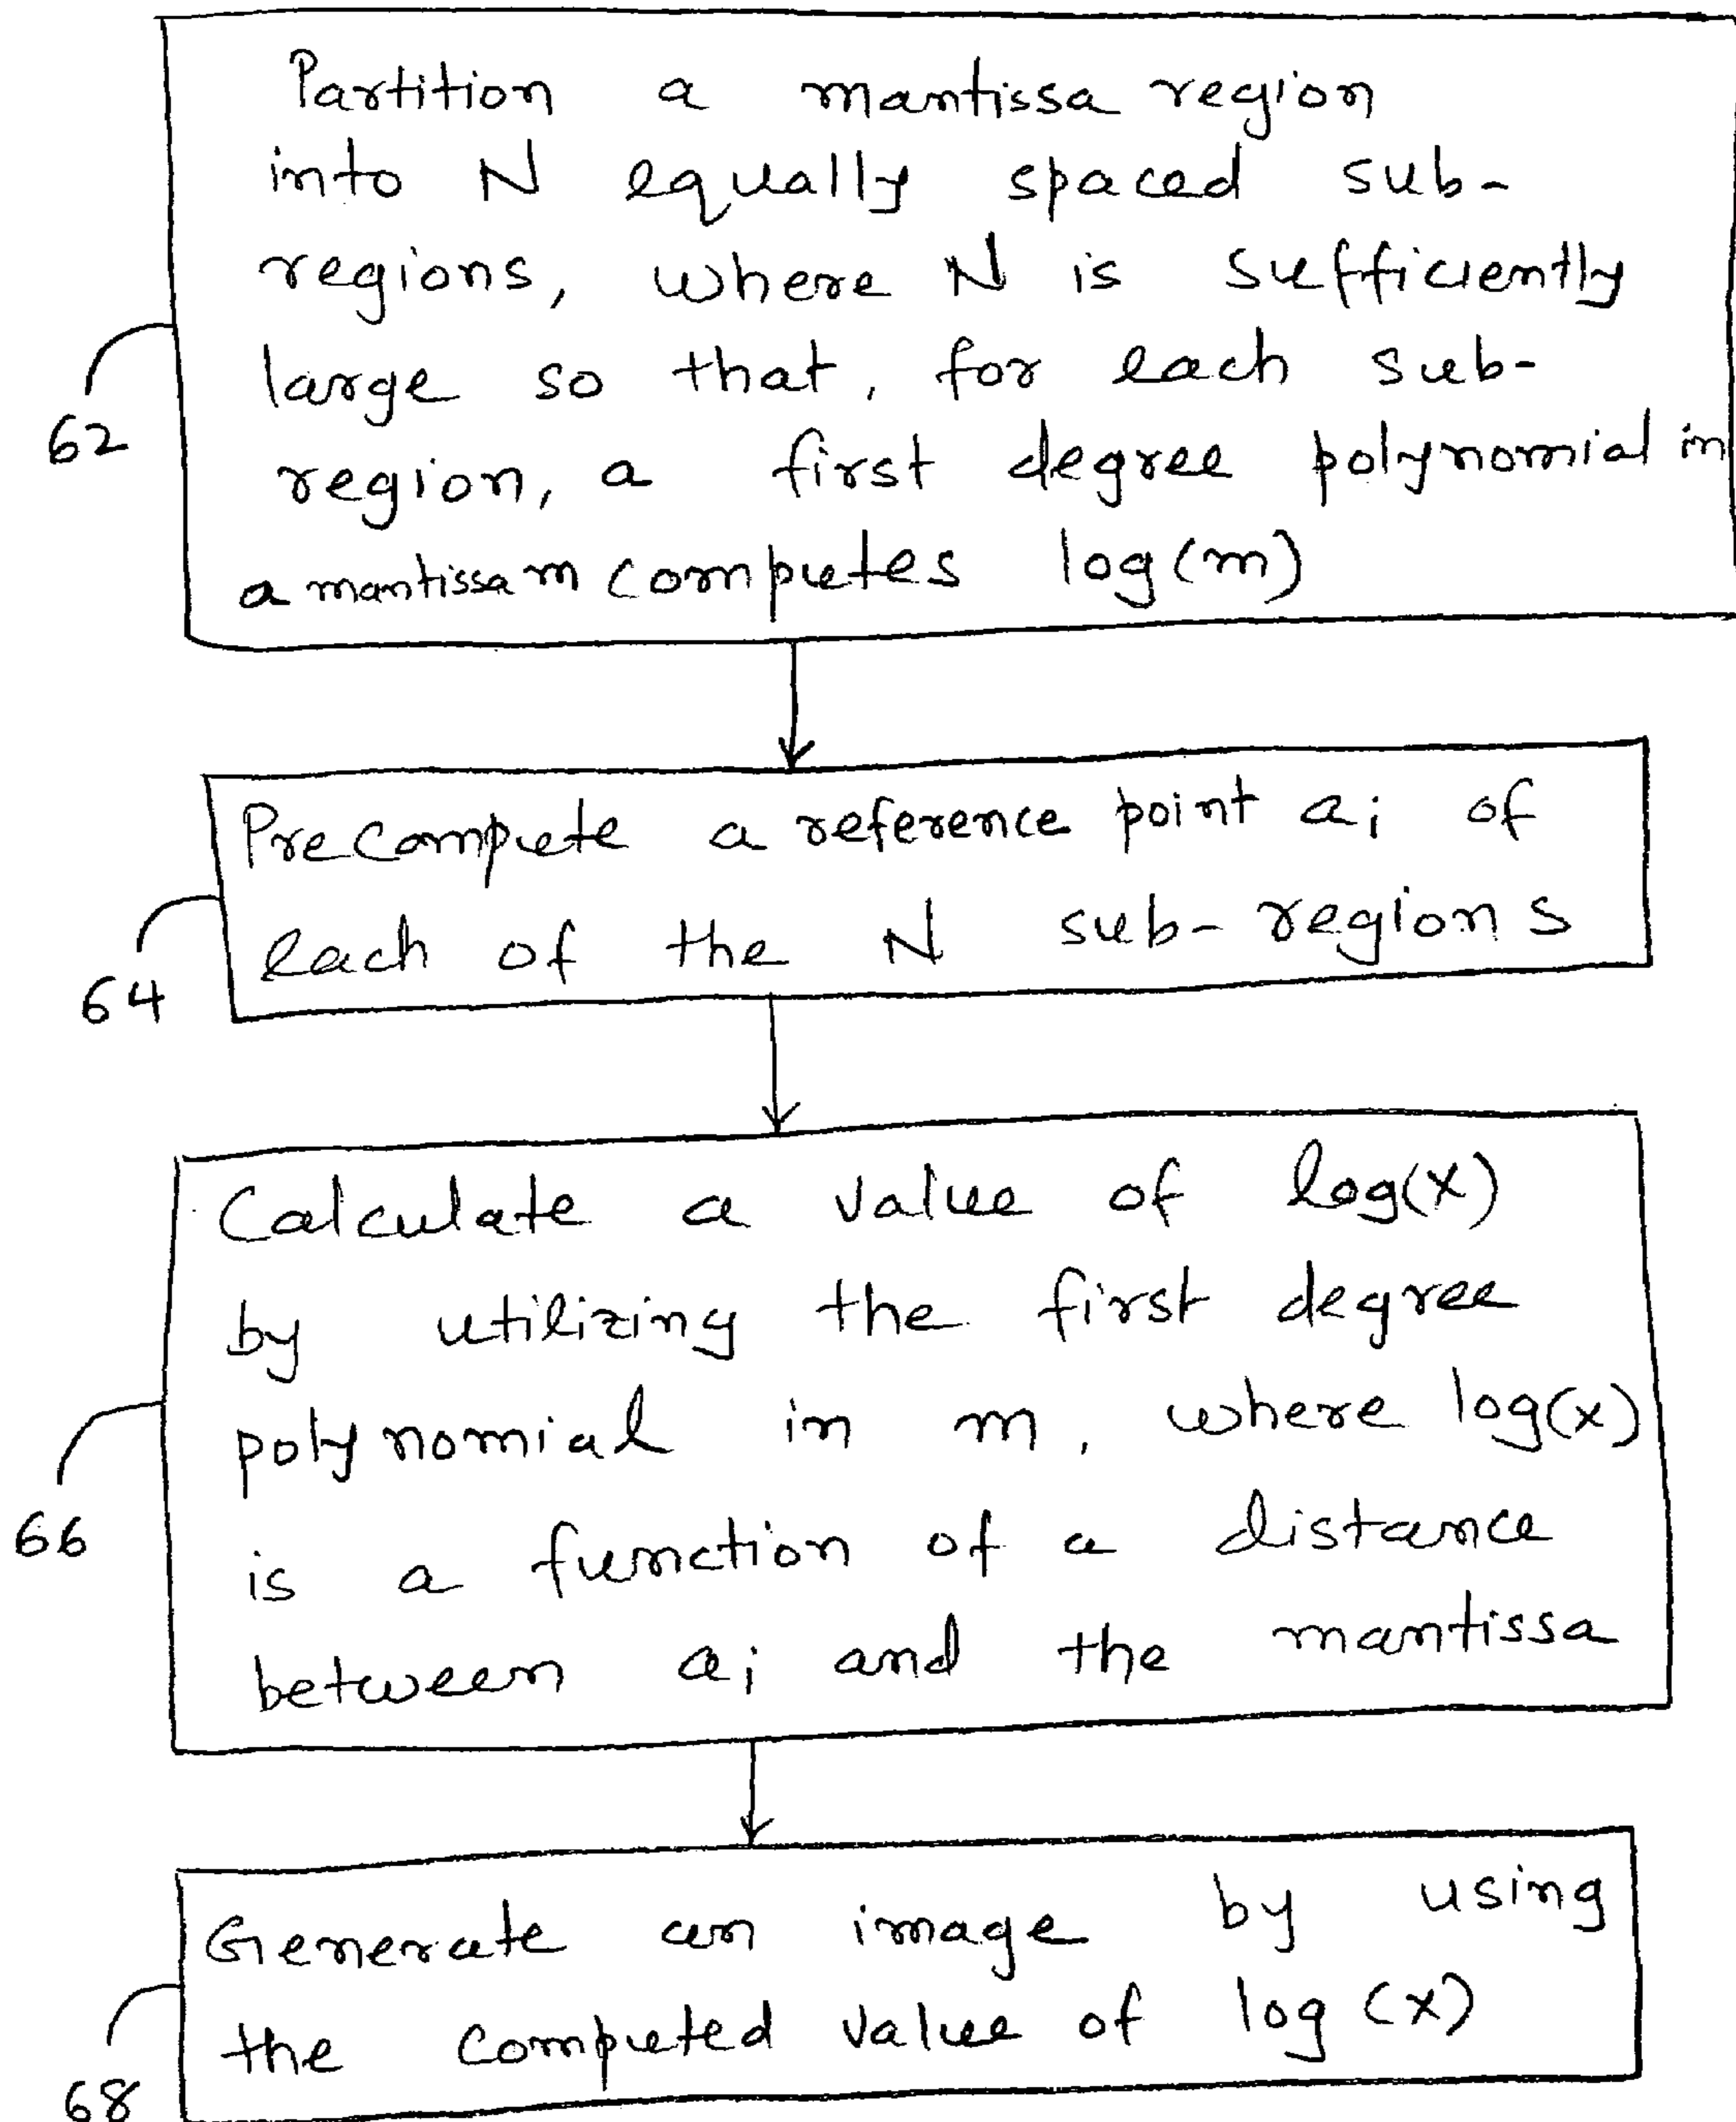 Partition a mantissa region
into N equally spaced sub-
regions, where N is sufficiently
large so that, for each sub-
62
region, a first degree polynomial in
a mantissa m computes log(m)
Precompute a reference point ai of
each of the N sub-regions
64
Calculate a value of log(x)
by utilizing the first degree
polynomial in m, where log(x)
66
is a function of a distance
between ai and the mantissa
Generate an image by using
the computed value of log (x)
68